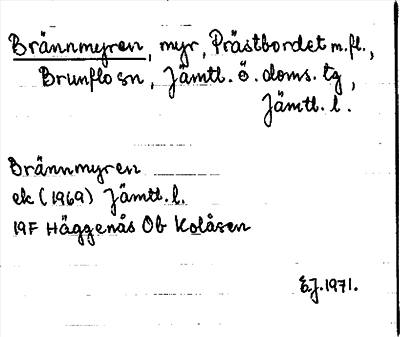 Brännmyren, myr, Prästbordet m.fl.,
Brunflo sn, Jämtl. ö. doms. tg,
Jämtl. l.
Brännmyren
ek (1969) Jämtl. l.
19F Häggenås Ob Kolåsen
E.J. 1971.